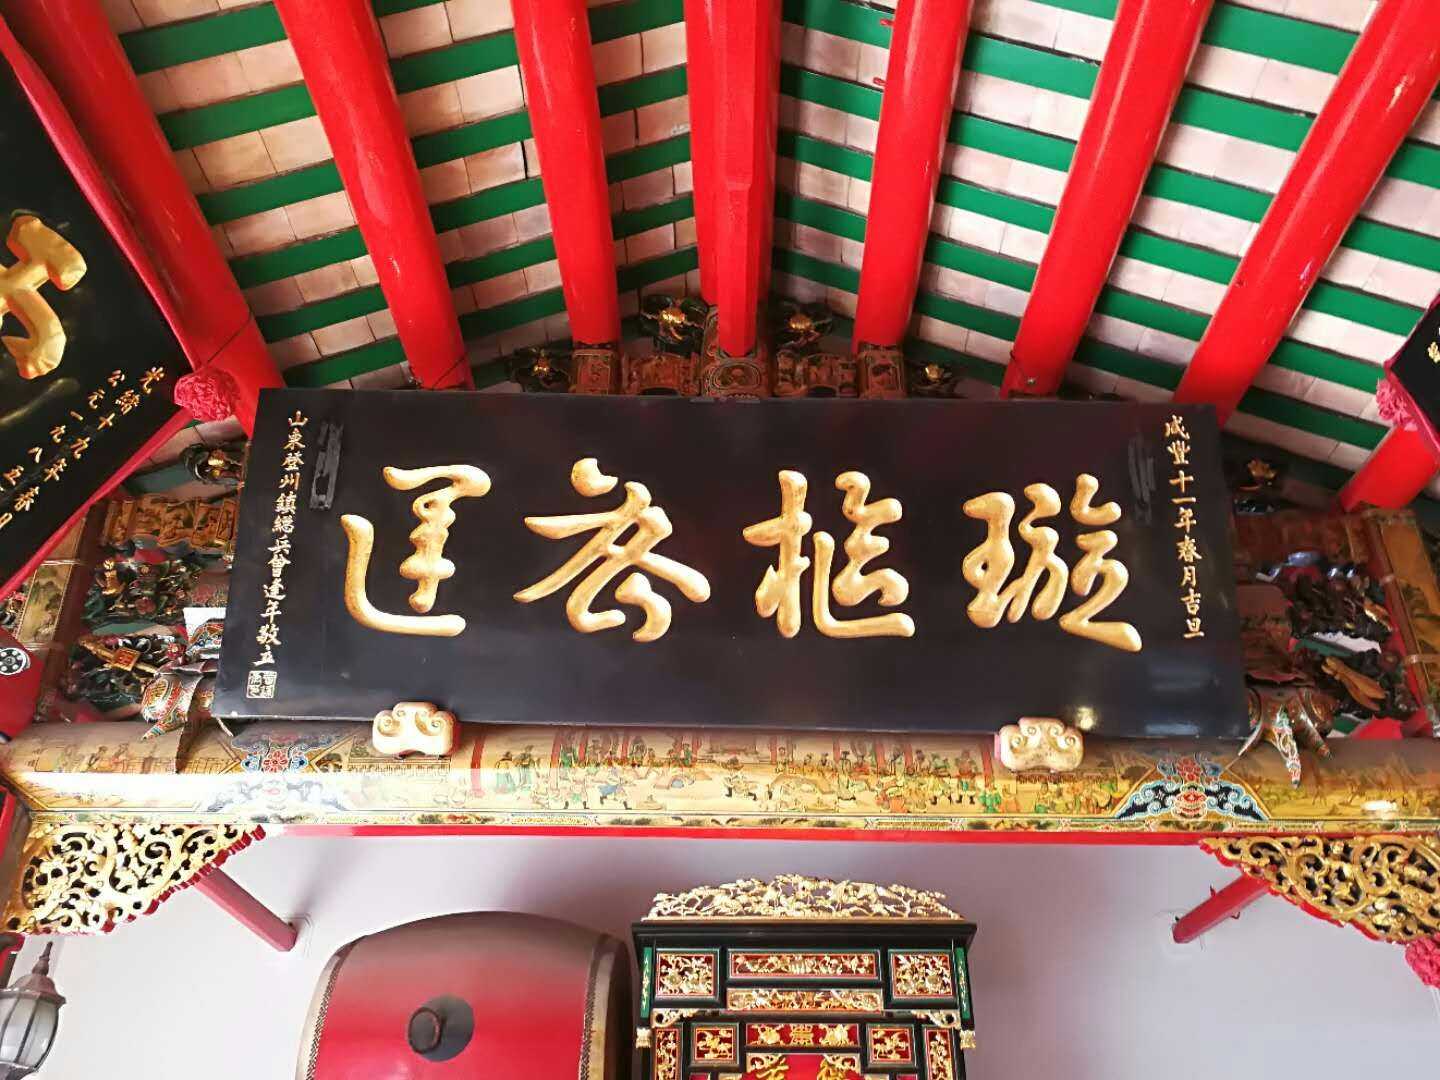 咸豐十一年春月吉旦
璇樞運
山東登州鎮總兵曾逢年敬立
光緒十九年春月
公元一九八五